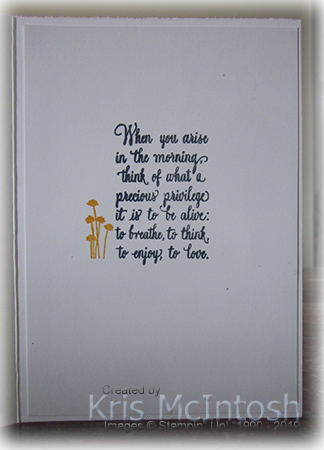 When you arise
in the morning,
think of what a
precious privilege
it is to be alive:
to breathe, to think,
to enjoy, to love.
Created by
Kris McIntosh
Images © Stampin' Up! 1990 - 2019